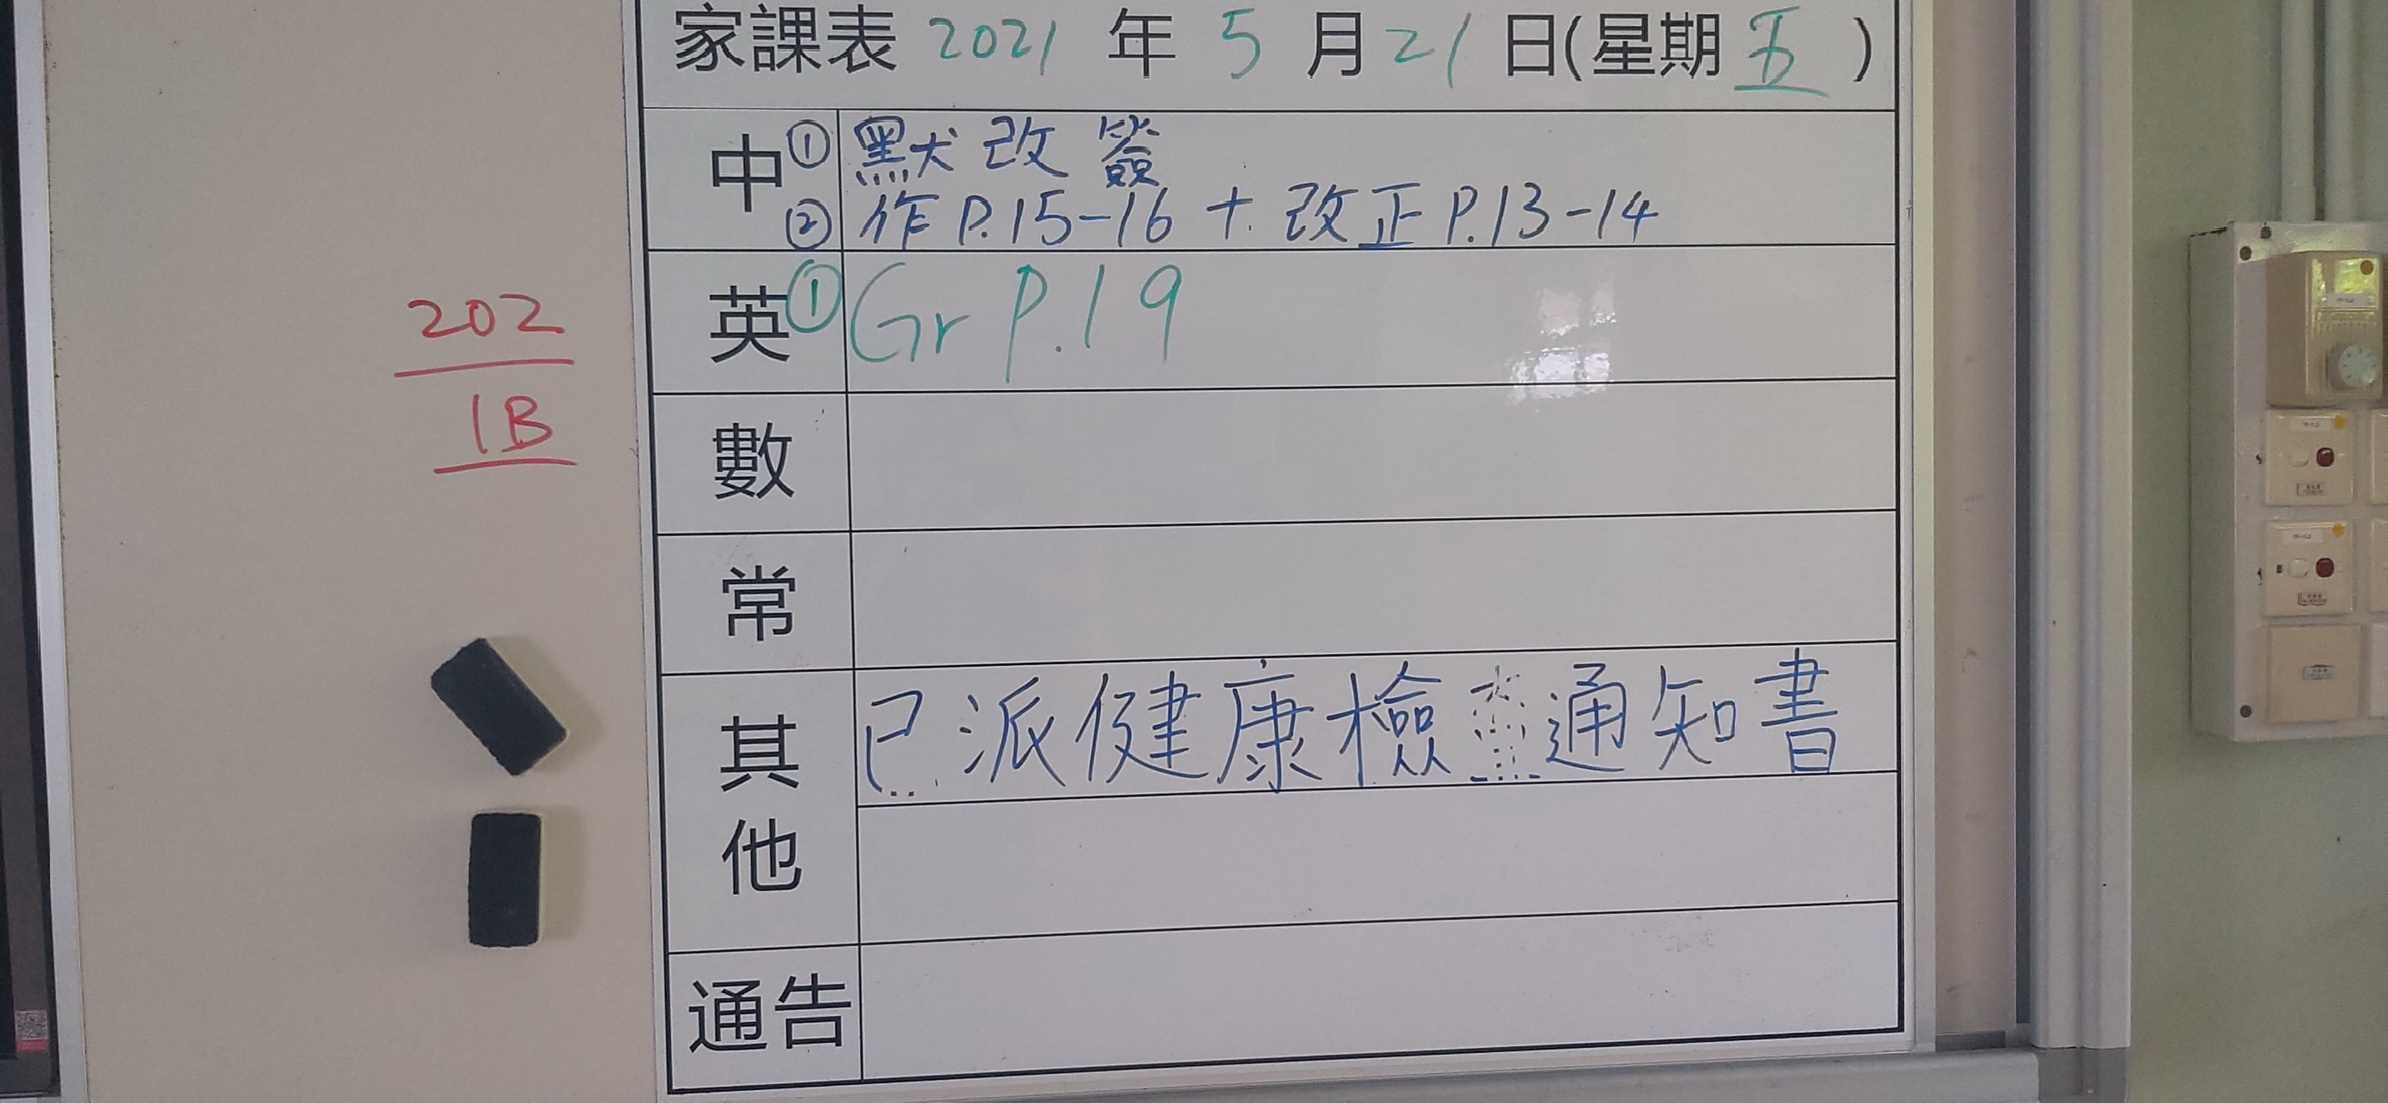 家課表 2021 年 5 月 21 日(星期 五 )
中 ① 默改簽
② 作 P.15-16 + 改正 P.13-14
英 ① Gr P.19
202
1B
數
常
其他 已派健康檢查通知書
通告